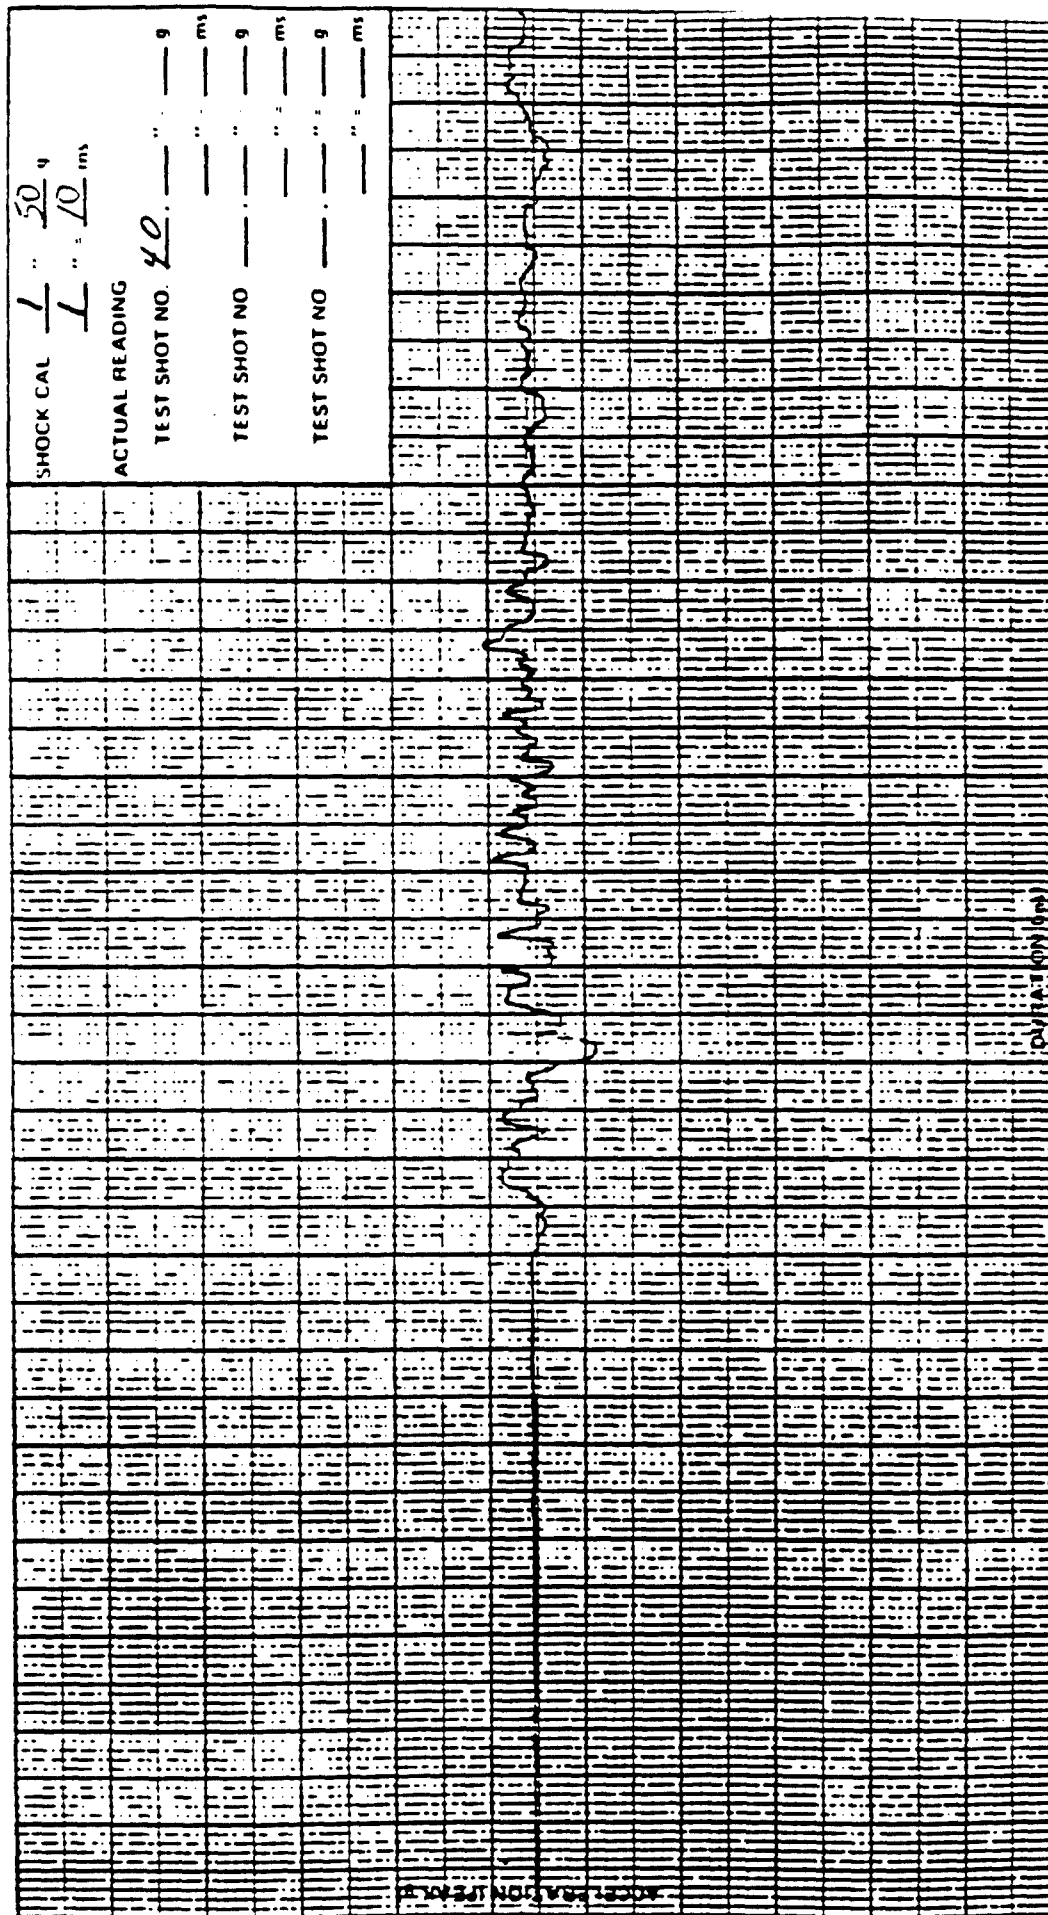 SHOCK CAL 1 " 50 g
1 " = 10 ms
ACTUAL READING
TEST SHOT NO. 40. ___ " - ___ g
___ " - ___ ms
TEST SHOT NO ___. ___ " - ___ g
___ " = ___ ms
TEST SHOT NO ___. ___ " = ___ g
___ " = ___ ms
ACCELERATION (PEAK g)
DURATION (ms)